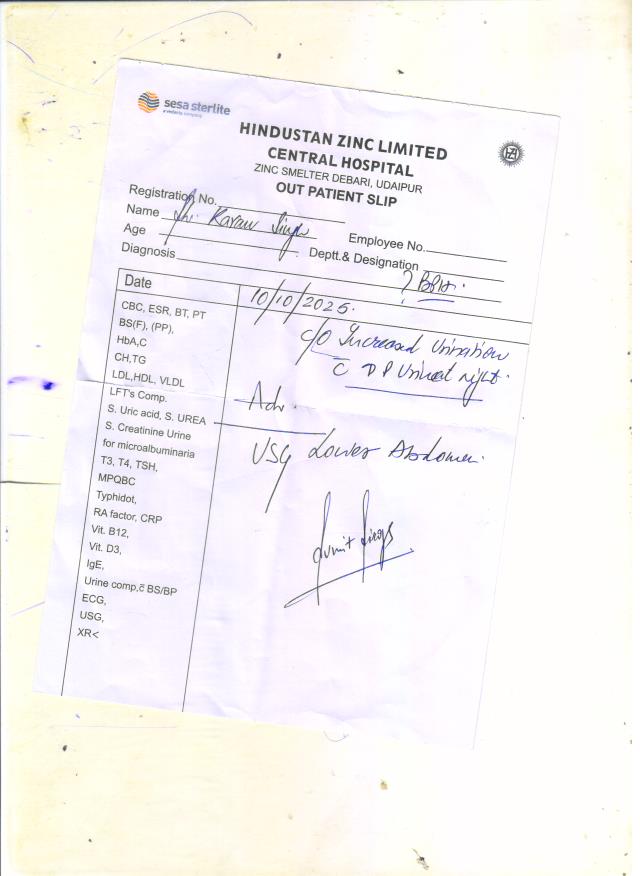 sesa sterlite
a vedanta company
HINDUSTAN ZINC LIMITED
CENTRAL HOSPITAL
ZINC SMELTER DEBARI, UDAIPUR
OUT PATIENT SLIP
Registration No.
Name Sh. Karan Singh Employee No.
Age Deptt.& Designation
Diagnosis ? BPH.
Date 10/10/2025.
CBC, ESR, BT, PT
BS(F), (PP),
HbA,C
CH,TG
LDL,HDL, VLDL
LFT's Comp.
S. Uric acid, S. UREA
S. Creatinine Urine
for microalbuminaria
T3, T4, TSH,
MPQBC
Typhidot,
RA factor, CRP
Vit. B12,
Vit. D3,
IgE,
Urine comp,c̄ BS/BP
ECG,
USG,
XR<
c/o Increased Urination
c̄ night.
Adv.
USG Lower Abdomen.